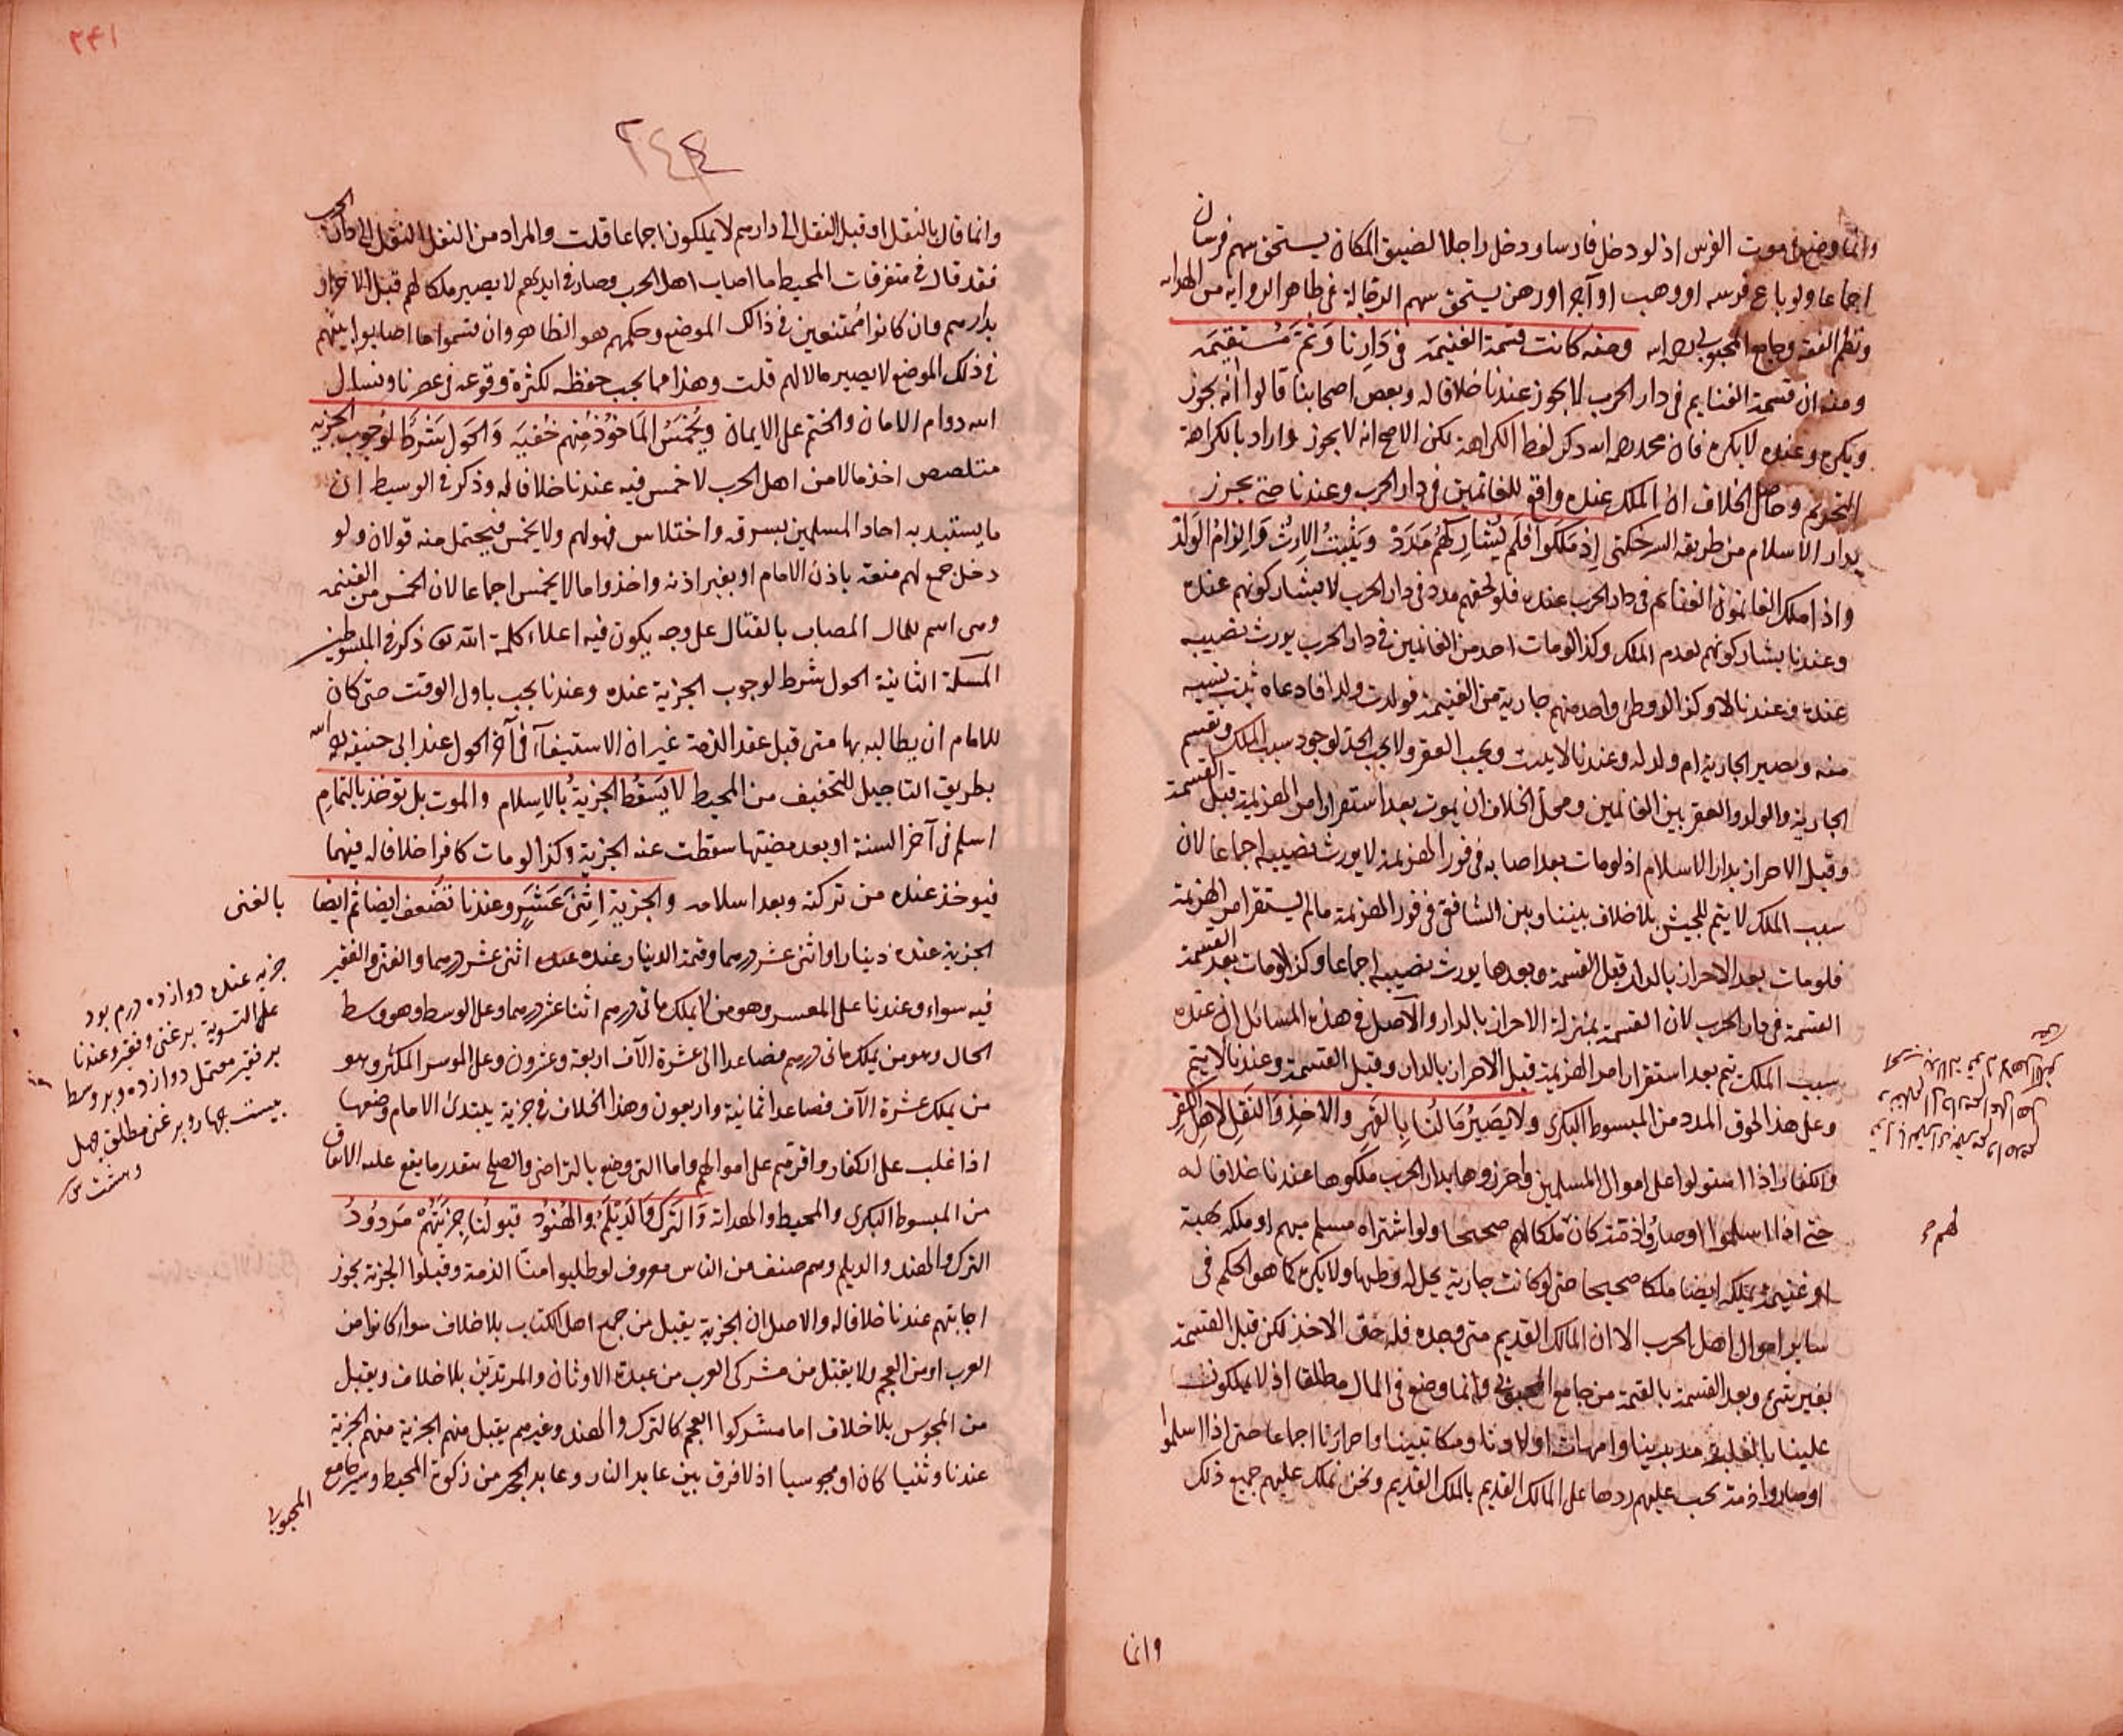 وانما وضع في موت الفرس اذ لو دخل فارسا ودخل راجلا لضيق المكان يستحق سهم فرسان
اجماعا ولو باع فرسه او وهب او آجر او رهن يستحق سهم الرجالة في ظاهر الرواية من الهداية
ونظم الفقه وجامع المحبوبي رحمه الله وصنه كانت قسمة الغنيمة في دارنا وثم مستقيمة
ومنه ان قسمة الغنايم في دار الحرب لا يجوز عندنا خلافا له وبعض اصحابنا قالوا انه يجوز
ويكره وعنده لا يكره فان محمد رحمه الله ذكر لفظ الكراهة لكن الاصح انه لا يجوز واراد بالكراهة
التحريم وحاصل الخلاف ان الملك عنده واقع للغانمين في دار الحرب وعندنا حتى يحرز
بدار الاسلام من طريقه السرخكتي اذ ملكوا فلم يشاركهم مدد ويثبت الارث والزام الولد
واذا ملك الغانمون الغنائم في دار الحرب عنده فلو لحقهم مدد في دار الحرب لا يشاركونهم عنده
وعندنا يشاركونهم لعدم الملك وكذا لو مات احد من الغانمين في دار الحرب يورث نصيبه
عنده وعندنا لا وكذا لو وطئ واحد منهم جارية من الغنيمة فولدت ولدا فادعاه ثبت نسبه
منه وتصير الجارية ام ولد له وعندنا لا يثبت ويجب العقر ولا يجب الحد لوجود سبب الملك وتقسم
الجارية والولد والعقر بين الغانمين ومحل الخلاف ان يموت بعد استقرار امر الهزيمة قبل القسمة
وقبل الاحراز بدار الاسلام اذ لو مات بعد اصابه في فور الهزيمة لا يورث نصيبه اجماعا لان
سبب الملك لا يتم للجيش بلا خلاف بيننا وبين الشافعي في فور الهزيمة ما لم يستقر امر الهزيمة
فلو مات بعد الاحراز بالدار قبل القسمة وبعدها يورث نصيبه اجماعا وكذا لو مات بعد القسمة
القسمة في دار الحرب لان القسمة بمنزلة الاحراز بالدار والاصل في هذه المسائل ان عنده
سبب الملك يتم بعد استقرار امر الهزيمة قبل الاحراز بالدار وقبل القسمة وعندنا لا يتم
وعلى هذا لحوق المدد من المبسوط البكري ولا يصير مالنا بالقهر والاخذ والنقل لاهل الكفر
والكفار اذا استولوا على اموال المسلمين واحرزوها بدار الحرب ملكوها عندنا خلافا له
حتى اذا اسلموا او صاروا ذمة كان ملكا لهم صحيحا ولو اشتراه مسلم منهم او ملكه بهبة
او غنيمة يملكه ايضا ملكا صحيحا حتى لو كانت جارية يحل له وطيها ولا يكره كما هو الحكم في
سائر اموال اهل الحرب الا ان المالك القديم متى وجده فله حق الاخذ لكن قبل القسمة
بغير شيء وبعد القسمة بالقيمة من جامع المحبوبي وانما وضع في المال مطلقا اذ لا يملكون
علينا بالغلبة مدبرينا وامهات اولادنا ومكاتبينا واحرارنا اجماعا حتى اذا اسلموا
او صاروا ذمة يجب عليهم ردها على المالك القديم بالملك القديم ونحن نملك عليهم جميع ذلك
لهم
وانما
٢٤١
٢٤٤
وانما قال بالنقل او قبل النقل الى دارهم لا يملكون اجماعا قلت والمراد من النقل النقل الى دار الحرب
فقد قال في متفرقات المحيط ما اصاب اهل الحرب وصار في ايديهم لا يصير ملكا لهم قبل الاحراز
بدارهم وان كانوا ممتنعين في ذلك الموضع وحكمهم هو الظاهر وان قسموا ما اصابوا بينهم
في ذلك الموضع لا يصير مالا لهم قلت وهذا مما يجب حفظه لكثرة وقوعه في عصرنا ونسأل
الله دوام الامان والختم على الايمان ويخمس الماخوذ منهم خفية والحول شرط لوجوب الجزية
متلصص اخذ مالا من اهل الحرب لا خمس فيه عندنا خلافا له وذكر في الوسيط ان
ما يستبد به احاد المسلمين بسرقه واختلاس فهو لهم ولا يخمس فيحتمل منه قولان ولو
دخل جمع لهم منعة باذن الامام او بغير اذنه واخذوا مالا يخمس اجماعا لان الخمس من الغنيمة
وهي اسم للمال المصاب بالقتال على وجه يكون فيه اعلاء كلمة الله تعالى ذكره في المبسوطين
المسئلة الثانية الحول شرط لوجوب الجزية عنده وعندنا يجب باول الوقت حتى كان
للامام ان يطالبه بها متى قبل عقد الذمة غير ان الاستيفاء في آخر الحول عند ابي حنيفة رحمه الله
بطريق التاجيل للتخفيف من المحيط لا يسقط الجزية بالاسلام والموت بل تؤخذ بالتمام
اسلم في آخر السنة او بعد مضيتها سقطت عنه الجزية وكذا لو مات كافرا خلافا له فيهما
فيوخذ عنده من تركته وبعد اسلامه والجزية اثني عشر وعندنا تضعف ايضا ثم ايضا بالغنى
الجزية عنده دينار او اثنى عشر درهما وقيمة الدينار عنده اثنى عشر درهما والغني والفقير
فيه سواء وعندنا على المعسر وهو من لا يملك مائتي درهم اثنا عشر درهما وعلى الوسط وهو وسط
الحال وهو من يملك مائتي درهم فصاعدا الى عشرة الآف اربعة وعشرون وعلى الموسر المكثر وهو
من يملك عشرة الآف فصاعدا ثمانية واربعون وهذا الخلاف في جزية يبتدئ الامام وضعها
اذا غلب على الكفار واقرهم على اموالهم واما التي وضع بالتراضي والصلح يتقدر ما يقع عليه الاتفاق
من المبسوط البكري والمحيط والهداية والترك والديلم والهنود قبولنا جزيتهم مردود
الترك والهند والديلم وهم صنف من الناس معروف لو طلبوا منا الذمة وقبلوا الجزية يجوز
اجابتهم عندنا خلافا له والاصل ان الجزية يقبل من جميع اهل الكتاب بلا خلاف سواء كانوا من
العرب او من العجم ولا يقبل من مشركي العرب من عبدة الاوثان والمرتدين بلا خلاف ويقبل
من المجوس بلا خلاف اما مشركوا العجم كالترك والهند وغيرهم يقبل منهم الجزية منهم الجزية
عندنا وثنيا كان او مجوسيا اذ لا فرق بين عابد النار وعابد الحجر من زكوة المحيط وسير جامع
المحبوبي
جزيه عنده دوازده درم بود
على التسوية بر غني وفقير وعندنا
بر فقير معتمل دوازده وبر وسط
بيست چهار وبر غني مطلق چهل
وهشت